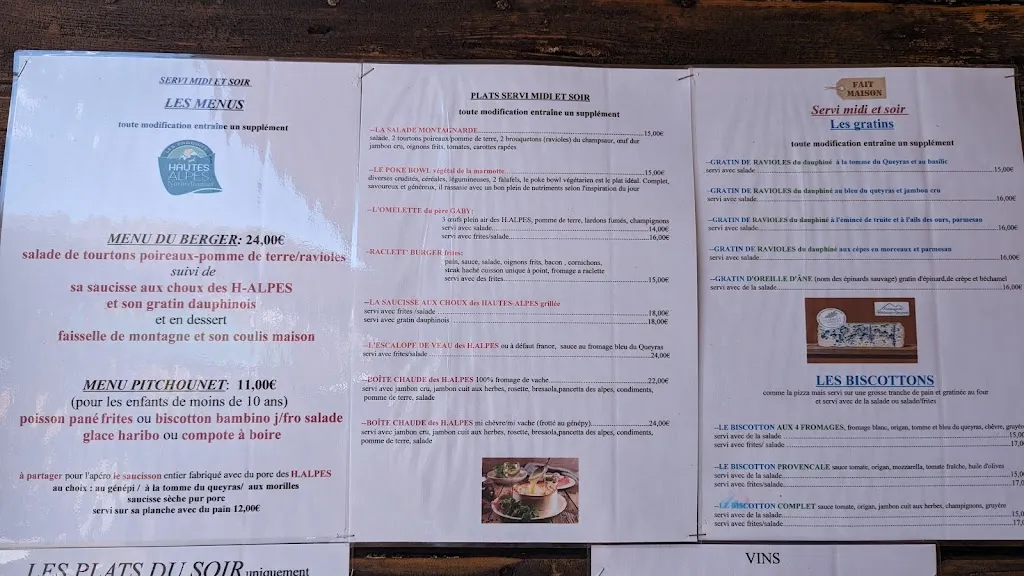 SERVI MIDI ET SOIR
LES MENUS
toute modification entraîne un supplément
HAUTES
ALPES
MENU DU BERGER: 24,00€
salade de tourtons poireaux-pomme de terre/ravioles
suivi de
sa saucisse aux choux des H-ALPES
et son gratin dauphinois
et en dessert
faisselle de montagne et son coulis maison
MENU PITCHOUNET: 11,00€
(pour les enfants de moins de 10 ans)
poisson pané frites ou biscotton bambino j/fro salade
glace haribo ou compote à boire
à partager pour l'apéro le saucisson entier fabriqué avec du porc des H.ALPES
au choix : au génépi / à la tomme du queyras/ aux morilles
saucisse sèche pur porc
servi sur sa planche avec du pain 12,00€
LES PLATS DU SOIR uniquement
PLATS SERVI MIDI ET SOIR
toute modification entraîne un supplément
–LA SALADE MONTAGNARDE 15,00€
salade, 2 tourtons poireaux/pomme de terre, 2 brouquetons (ravioles) du champsaur, œuf dur
jambon cru, oignons frits, tomates, carottes rapées
–LE POKE BOWL végétal de la marmotte 15,00€
diverses crudités, céréales, légumineuses, 2 falafels, le poké bowl végétarien est le plat idéal. Complet,
savoureux et généreux, il rassasie avec un bon plein de nutriments selon l'inspiration du jour
–L'OMELETTE du père GABY:
3 œufs plein air des H.ALPES, pomme de terre, lardons fumés, champignons
servi avec salade 14,00€
servi avec frites/salade 16,00€
–RACLETT' BURGER frites:
pain, sauce, salade, oignons frits, bacon , cornichons,
steak haché cuisson unique à point, fromage a raclette
servi avec des frites 15,00€
–LA SAUCISSE AUX CHOUX des HAUTES-ALPES grillée
servi avec frites /salade 18,00€
servi avec gratin dauphinois 18,00€
–L'ESCALOPE DE VEAU des H.ALPES ou à défaut france, sauce au fromage bleu du Queyras
servi avec frites/salade 24,00€
–BOÎTE CHAUDE des H.ALPES 100% fromage de vache 22,00€
servi avec jambon cru, jambon cuit aux herbes, rosette, bressola,pancetta des alpes, condiments,
pomme de terre, salade
–BOÎTE CHAUDE des H.ALPES mi chèvre/mi vache (frotté au génépy) 24,00€
servi avec jambon cru, jambon cuit aux herbes, rosette, bressola,pancetta des alpes, condiments,
pomme de terre, salade
FAIT
MAISON
Servi midi et soir
Les gratins
toute modification entraîne un supplément
–GRATIN DE RAVIOLES du dauphiné à la tomme du Queyras et au basilic
servi avec salade 15,00€
–GRATIN DE RAVIOLES du dauphiné au bleu du queyras et jambon cru
servi avec salade 16,00€
–GRATIN DE RAVIOLES du dauphiné à l'émincé de truite et à l'ails des ours, parmesan
servi avec salade 16,00€
–GRATIN DE RAVIOLES du dauphiné aux cèpes en morceaux et parmesan
servi avec salade 16,00€
–GRATIN D'OREILLE D'ÂNE (nom des épinards sauvage) gratin d'épinard,de crêpe et béchamel
servi avec de la salade 16,00€
LES BISCOTTONS
comme la pizza mais servi sur une grosse tranche de pain et gratinée au four
et servi avec de la salade ou salade/frites
–LE BISCOTTON AUX 4 FROMAGES, fromage blanc, origan, tomme et bleu du queyras, chèvre, gruyère
servi avec de la salade 15,00
servi avec frites/ salade 17,0
–LE BISCOTTON PROVENCALE sauce tomate, origan, mozzarella, tomate fraîche, huile d'olives
servi avec de la salade 15,0
servi avec frites/salade 17,0
–LE BISCOTTON COMPLET sauce tomate, origan, jambon cuit aux herbes, champignons, gruyère
servi avec de la salade 15,0
servi avec frites/salade 17,0
VINS